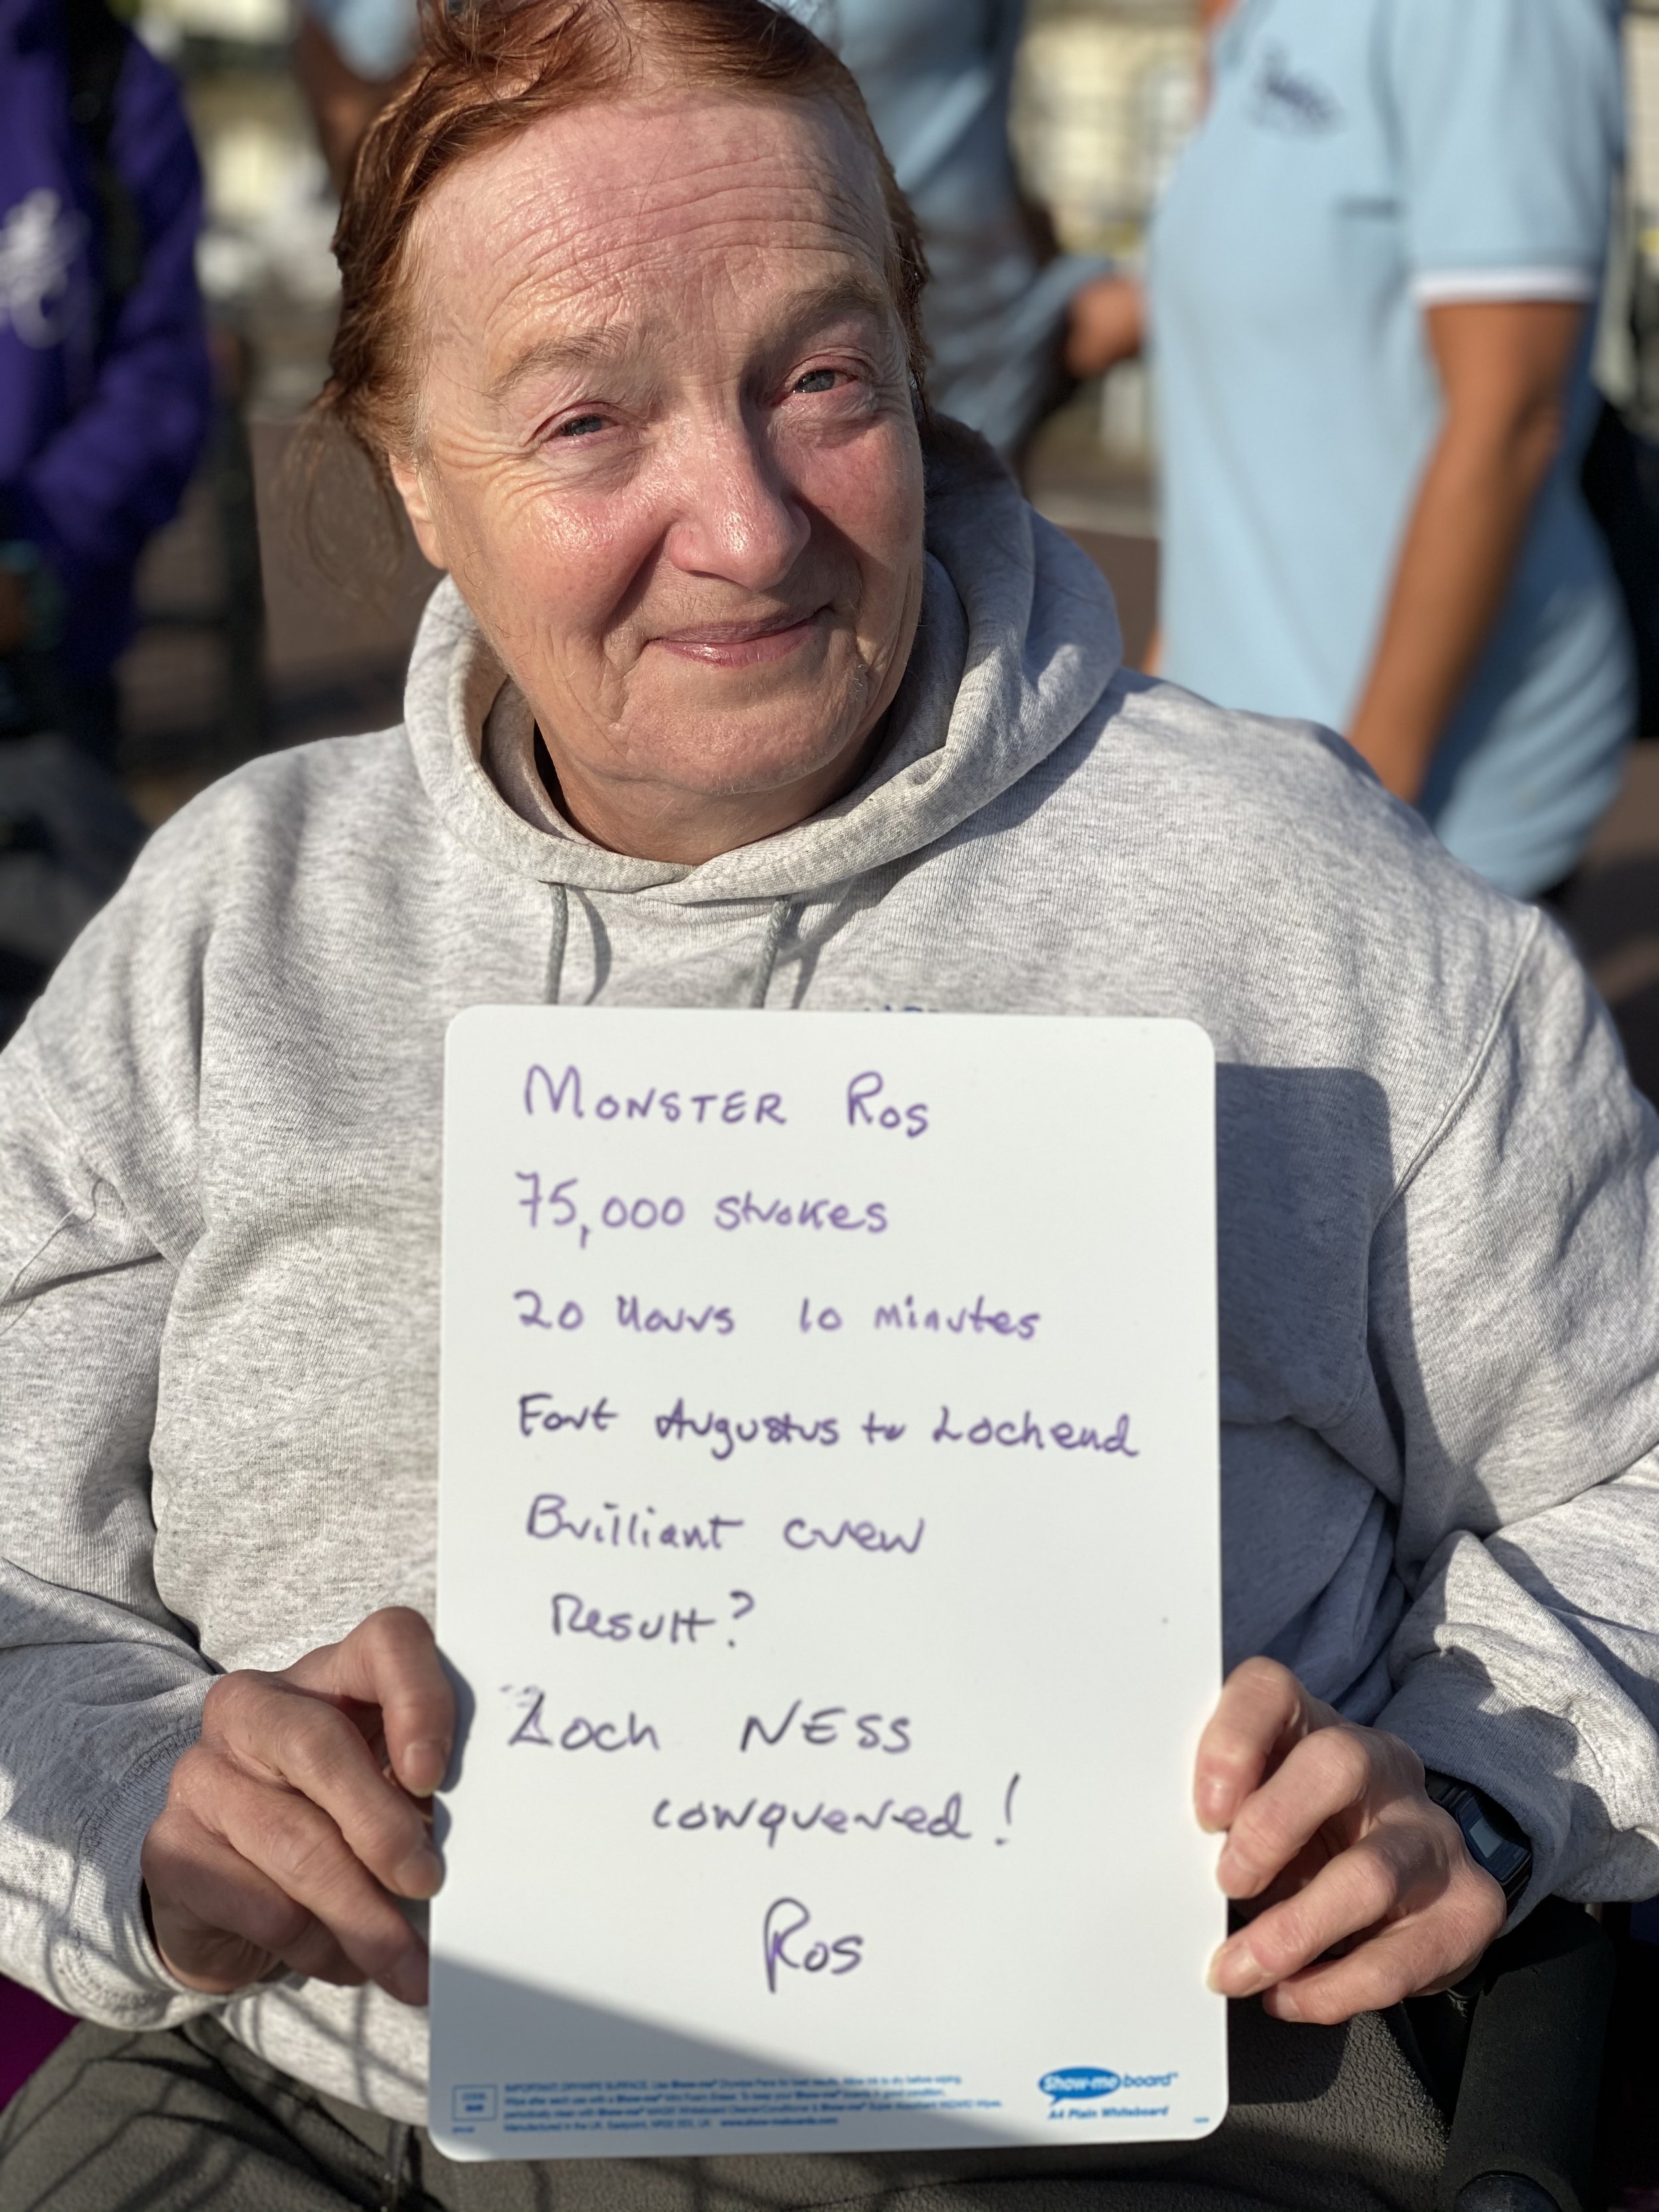 MONSTER ROS
75,000 strokes
20 Hours 10 minutes
Fort Augustus to Lochend
Brilliant crew
Result?
Loch NESS
conquered!
Ros
Show-me board
A4 Plain Whiteboard